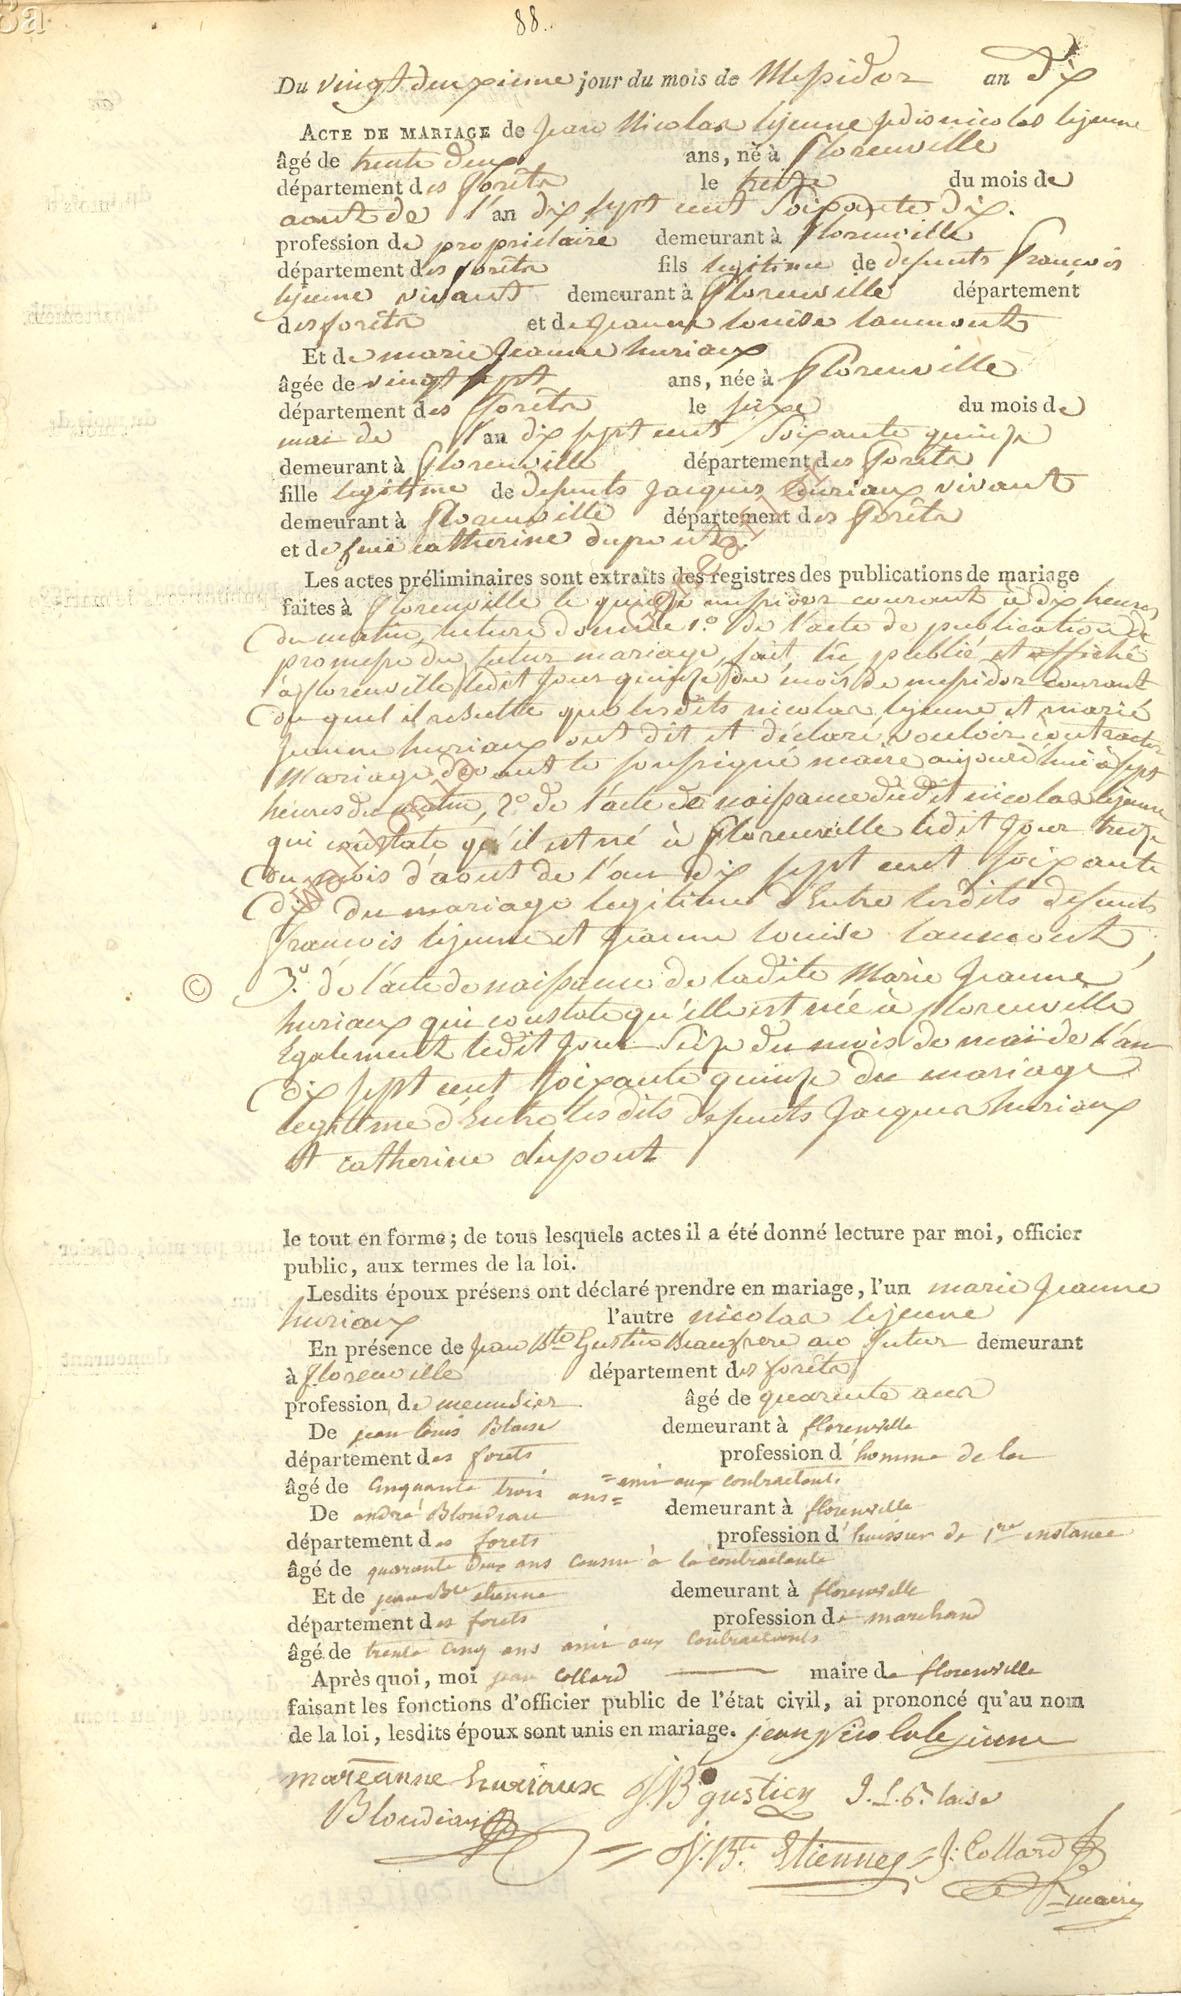 88.
Du vingt deuxieme jour du mois de Messidor an Dix
ACTE DE MARIAGE de Jean Nicolas lejeune nicolas lejeune
âgé de trente deux ans, né à florenville
département des forêts le treize du mois de
aout de l'an dix sept cent soixante dix.
profession de propriétaire demeurant à florenville
département des forêts fils legitime de defunts François
lejeune vivant demeurant à florenville département
des forêts et de jeanne louise laumont
Et de marie jeanne huriaux
âgée de vingt sept ans, née à florenville
département des forêts le seize du mois de
mai de l'an dix sept cent soixante quinze
demeurant à florenville département des forêts
fille legitime de defunts jacques huriaux vivant
demeurant à florenville département des forêts
et de feue catherine dupont
Les actes préliminaires sont extraits des registres des publications de mariage
faites à florenville le quinze messidor courant à dix heures
du matin, lecture donnée 1.º de l'acte de publication de
promesse du futur mariage, fait, lu publié et affiché
à florenville ledit jour quinze du mois de messidor courant
du quel il resulte que lesdits nicolas lejeune et marie
jeanne huriaux ont dit et déclaré vouloir contracter
mariage devant le soussigné maire aujourd'hui à sept
heures du matin, 2º de l'acte de naissance dudit nicolas lejeune
qui constate qu'il est né à florenville ledit jour treize
du mois d'aout de l'an dix sept cent soixante
dix du mariage legitime d'Entre lesdits defunts
françois lejeune et jeanne louise laumont,
© 3.º de l'acte de naissance de ladite Marie jeanne
huriaux qui constate qu'elle est née à florenville
Egalement ledit jour seize du mois de mai de l'an
dix sept cent soixante quinze du mariage
legitime d'Entre lesdits defunts jacques huriaux
et catherine dupont
le tout en forme; de tous lesquels actes il a été donné lecture par moi, officier
public, aux termes de la loi.
Lesdits époux présens ont déclaré prendre en mariage, l'un marie jeanne
huriaux l'autre nicolas lejeune
En présence de jean Bte Gustin Beaufrere au futur demeurant
à florenville département des forêts
profession de menusier âgé de quarente ans
De jean louis Blaise demeurant à florenville
département des forets profession d'homme de loi
âgé de cinquante trois ans = ami aux contractants.
De andré Blondiau demeurant à florenville
département des forets profession d'huissier de 1ere instance
âgé de quarante deux ans cousin à la contractante
Et de jean Bte etienne demeurant à florenville
département des forets profession de marchand
âgé de trente cinq ans ami aux contractants
Après quoi, moi jean Collard maire de florenville
faisant les fonctions d'officier public de l'état civil, ai prononcé qu'au nom
de la loi, lesdits époux sont unis en mariage. jean Nicolas lejeune
mareanne huriaux J.B gustin J. L. Blaise
Blondiau J. Bte. Etienne J: Collard
maire